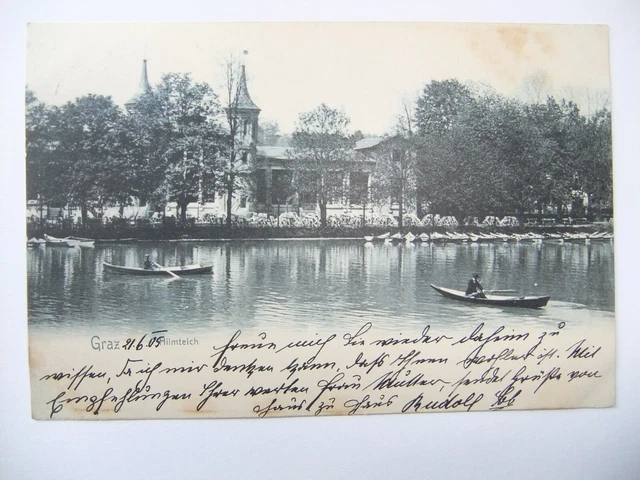 Graz 21.6.05 Hilmteich
freue mich Sie wieder daheim zu
wissen, da ich mir denken kann, daß Ihnen wohler ist. Mit
Empfehlungen Ihrer werten Frau Mutter, sendet Grüße von
Haus zu Haus Rudolf